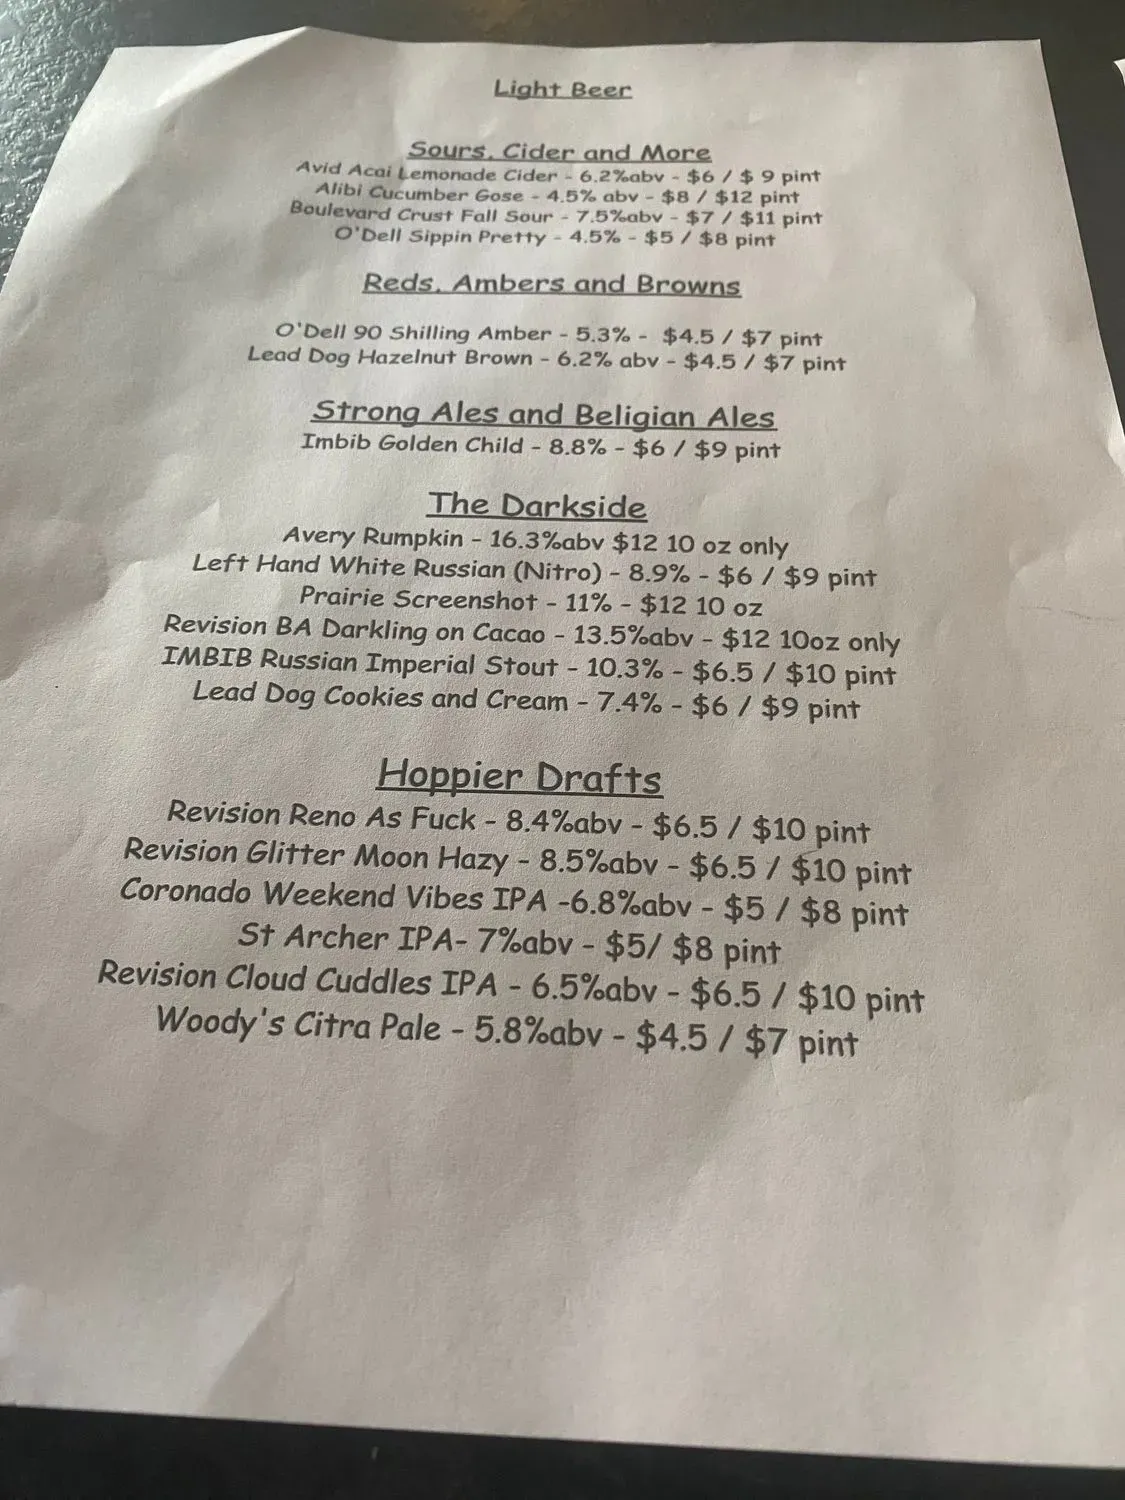 Light Beer
Sours, Cider and More
Avid Acai Lemonade Cider - 6.2%abv - $6 / $ 9 pint
Alibi Cucumber Gose - 4.5% abv - $8 / $12 pint
Boulevard Crust Fall Sour - 7.5%abv - $7 / $11 pint
O'Dell Sippin Pretty - 4.5% - $5 / $8 pint
Reds, Ambers and Browns
O'Dell 90 Shilling Amber - 5.3% - $4.5 / $7 pint
Lead Dog Hazelnut Brown - 6.2% abv - $4.5 / $7 pint
Strong Ales and Beligian Ales
Imbib Golden Child - 8.8% - $6 / $9 pint
The Darkside
Avery Rumpkin - 16.3%abv $12 10 oz only
Left Hand White Russian (Nitro) - 8.9% - $6 / $9 pint
Prairie Screenshot - 11% - $12 10 oz
Revision BA Darkling on Cacao - 13.5%abv - $12 10oz only
IMBIB Russian Imperial Stout - 10.3% - $6.5 / $10 pint
Lead Dog Cookies and Cream - 7.4% - $6 / $9 pint
Hoppier Drafts
Revision Reno As Fuck - 8.4%abv - $6.5 / $10 pint
Revision Glitter Moon Hazy - 8.5%abv - $6.5 / $10 pint
Coronado Weekend Vibes IPA -6.8%abv - $5 / $8 pint
St Archer IPA- 7%abv - $5/ $8 pint
Revision Cloud Cuddles IPA - 6.5%abv - $6.5 / $10 pint
Woody's Citra Pale - 5.8%abv - $4.5 / $7 pint